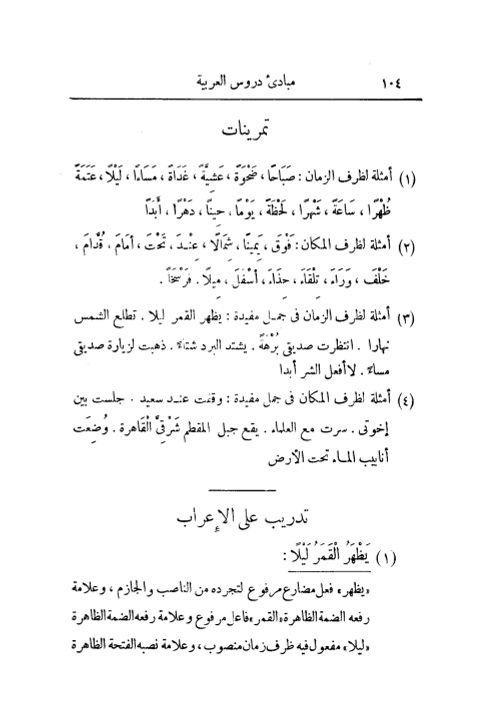 ١٠٤ مبادئ دروس العربية
تمرينات
(١) أمثلة لظرف الزمان : صَبَاحًا ، ضَحْوَةً ، عَشِيَّةً ، غَدَاةً ، مَسَاءًا ، لَيْلًا ، عَتَمَةً
ظُهْرًا ، سَاعَةً ، شَهْرًا ، لَحْظَةً ، يَوْمًا ، حِينًا ، دَهْرًا ، أَبَدًا
(٢) أمثلة لظرف المكان : فَوْقَ ، يَمِينًا ، شِمَالًا ، عِنْدَ ، تَحْتَ ، أَمَامَ ، قُدَّامَ ،
خَلْفَ ، وَرَاءَ ، تِلْقَاءَ ، حِذَاءَ ، أَسْفَلَ ، مِيلًا . فَرْسَخًا .
(٣) أمثلة لظرف الزمان فى جمل مفيدة : يظهر القمر ليلا . تطلع الشمس
نهارا . انتظرت صديقى بُرْهَةً . يشتد البرد شتاءً . ذهبت لزيارة صديقى
مساءً . لا أفعل الشر أبدا
(٤) أمثلة لظرف المكان فى جمل مفيدة : وقفت عند سعيد . جلست بين
إخوتى . سرت مع العلماء . يقع جبل المقطم شَرْقِيَّ الْقَاهرة . وُضِعَت
أنابيب الماء تحت الأرض
تدريب على الإعراب
(١) يَظْهَرُ الْقَمَرُ لَيْلًا :
«يظهر» فعل مضارع مرفوع لتجرده من الناصب والجازم ، وعلامة
رفعه الضمة الظاهرة «القمر» فاعل مرفوع وعلامة رفعه الضمة الظاهرة
«ليلا» مفعول فيه ظرف زمان منصوب ، وعلامة نصبه الفتحة الظاهرة